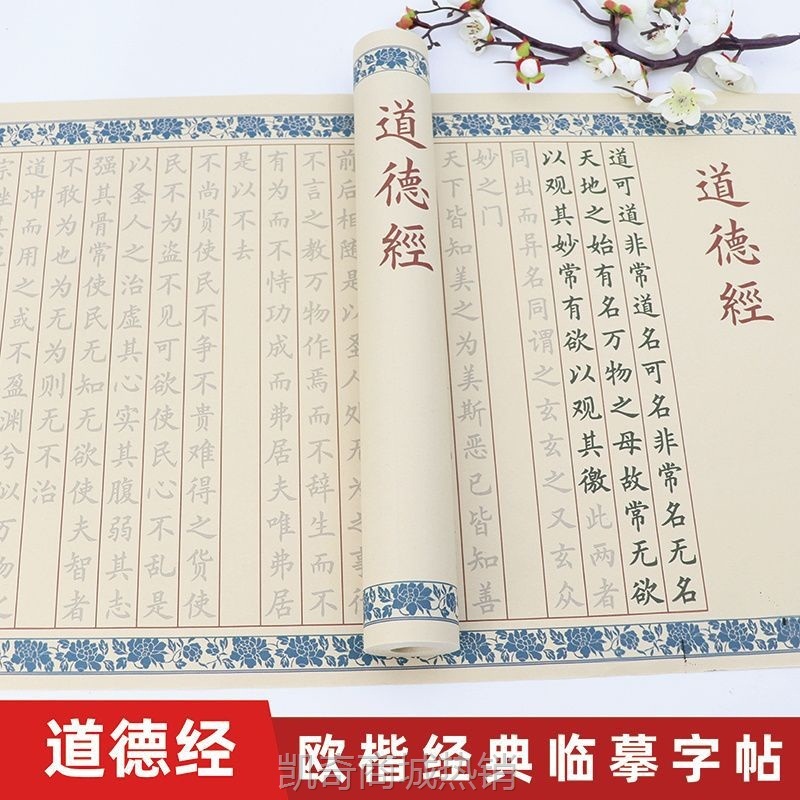 道德經
道可道非常道名可名非常名无名
天地之始有名万物之母故常无欲
以观其妙常有欲以观其徼此两者
同出而异名同谓之玄玄之又玄众
妙之门
天下皆知美之为美斯恶已皆知善
道德經
前后相随是以圣人处无为之事行
不言之教万物作焉而不辞生而不
有为而不恃功成而弗居夫唯弗居
是以不去
不尚贤使民不争不贵难得之货使
民不为盗不见可欲使民心不乱是
以圣人之治虚其心实其腹弱其志
强其骨常使民无知无欲使夫智者
不敢为也为无为则无不治
道冲而用之或不盈渊兮似万物
道德经
欧楷经典临摹字帖
凯奇商城热销